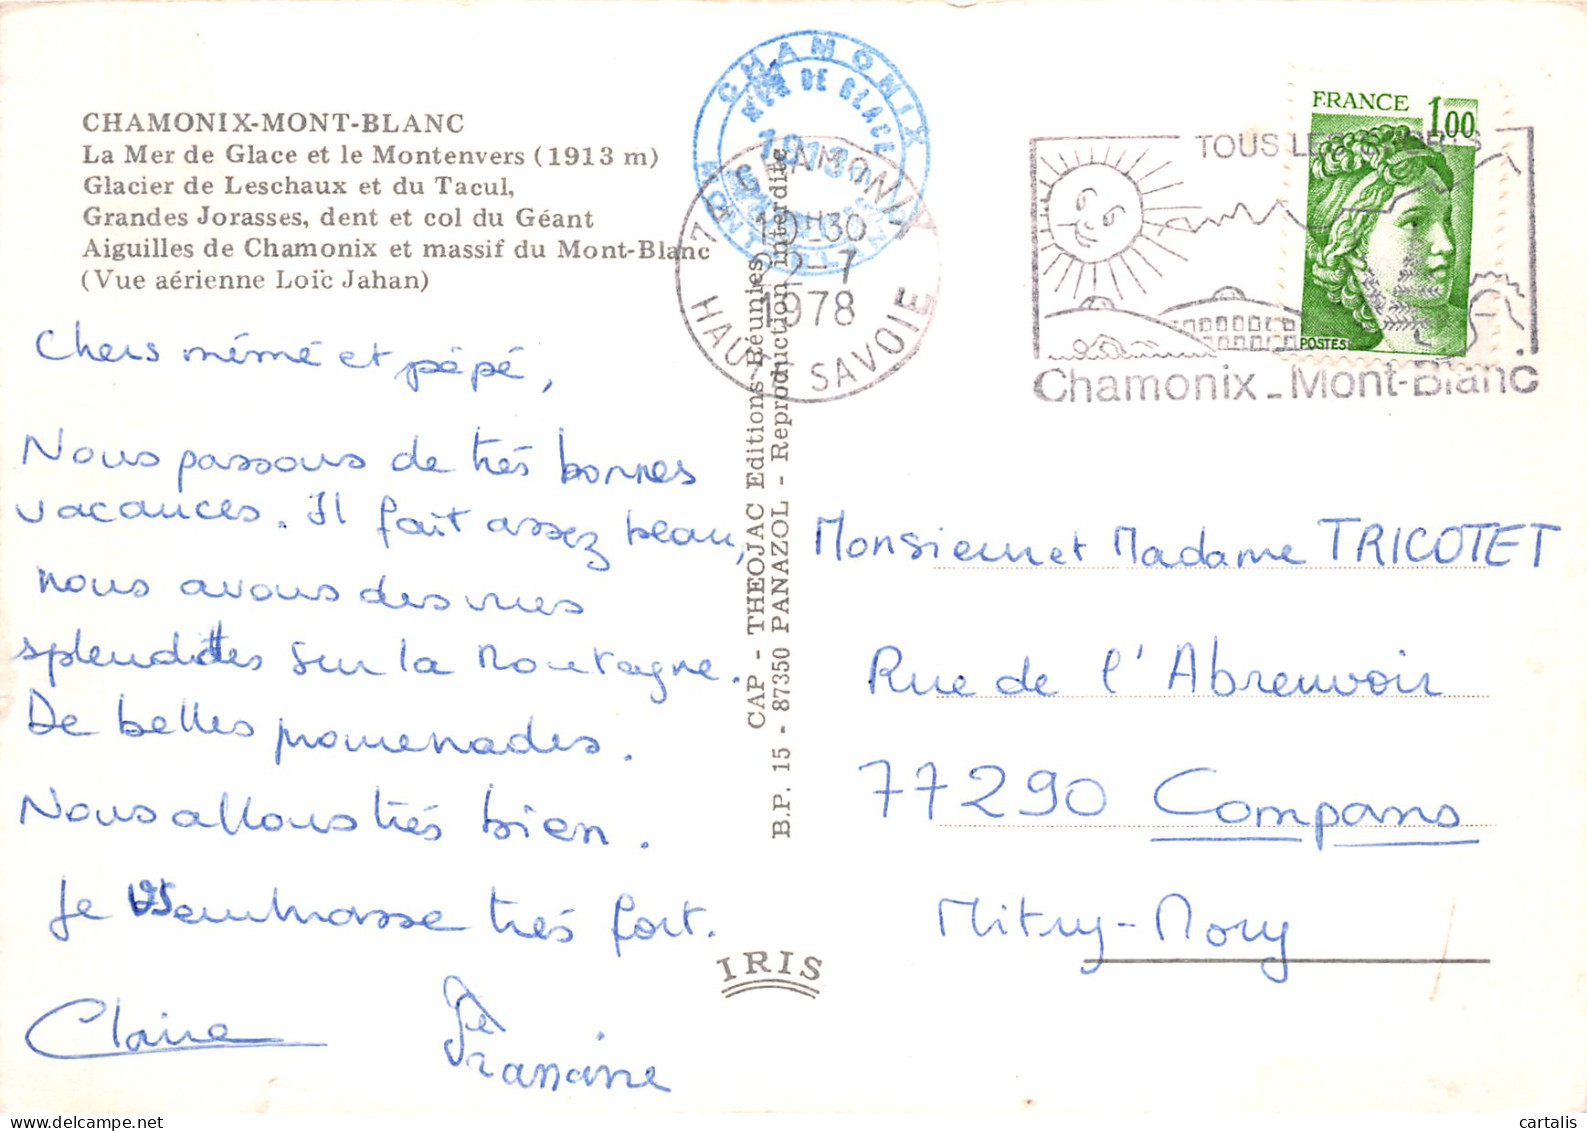 CHAMONIX-MONT-BLANC
La Mer de Glace et le Montenvers (1913 m)
Glacier de Leschaux et du Tacul,
Grandes Jorasses, dent et col du Géant
Aiguilles de Chamonix et massif du Mont-Blanc
(Vue aérienne Loïc Jahan)
Chers mémé et pépé,
Nous passons de très bonnes
vacances. Il fait assez beau,
nous avons des vues
splendides sur la montagne.
De belles promenades.
Nous allons très bien.
Je vous embrasse très fort.
Claire
Francine
CHAMONIX
MER DE GLACE
1913
MONT
74 CHAMONIX
19H30
22-7
1978
HAUTE SAVOIE
CAP - THEOJAC Editions-Réunies
B.P. 15 - 87350 PANAZOL - Reproduction interdite
IRIS
TOUS LES SPORTS
Chamonix_Mont-Blanc
FRANCE 1,00
POSTES
Monsieur et Madame TRICOTET
Rue de l'Abreuvoir
77290 Compans
Mitry-Mory
cartalis